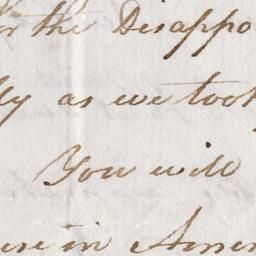 the Disappo
ly as we took
You will
in Amer